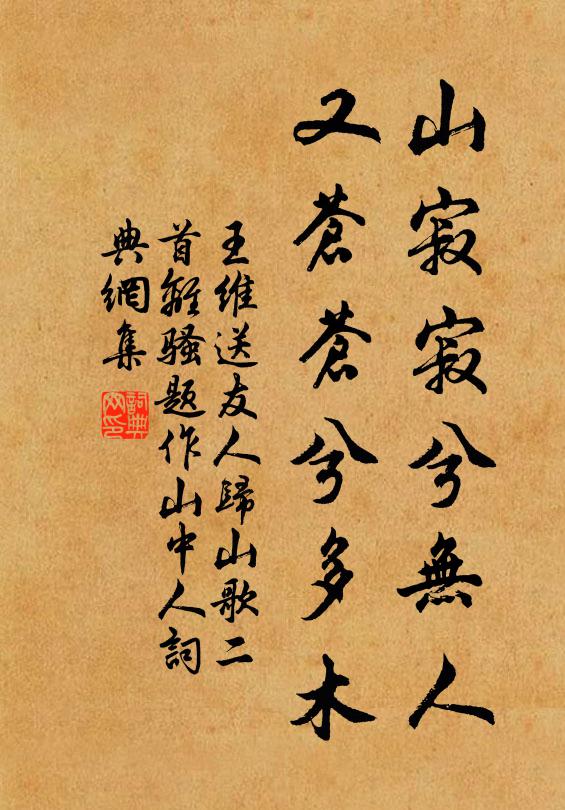 山寂寂兮無人
又蒼蒼兮多木
王維送友人歸山歌二
首離騷題作山中人詞
典網集
詞典
网印